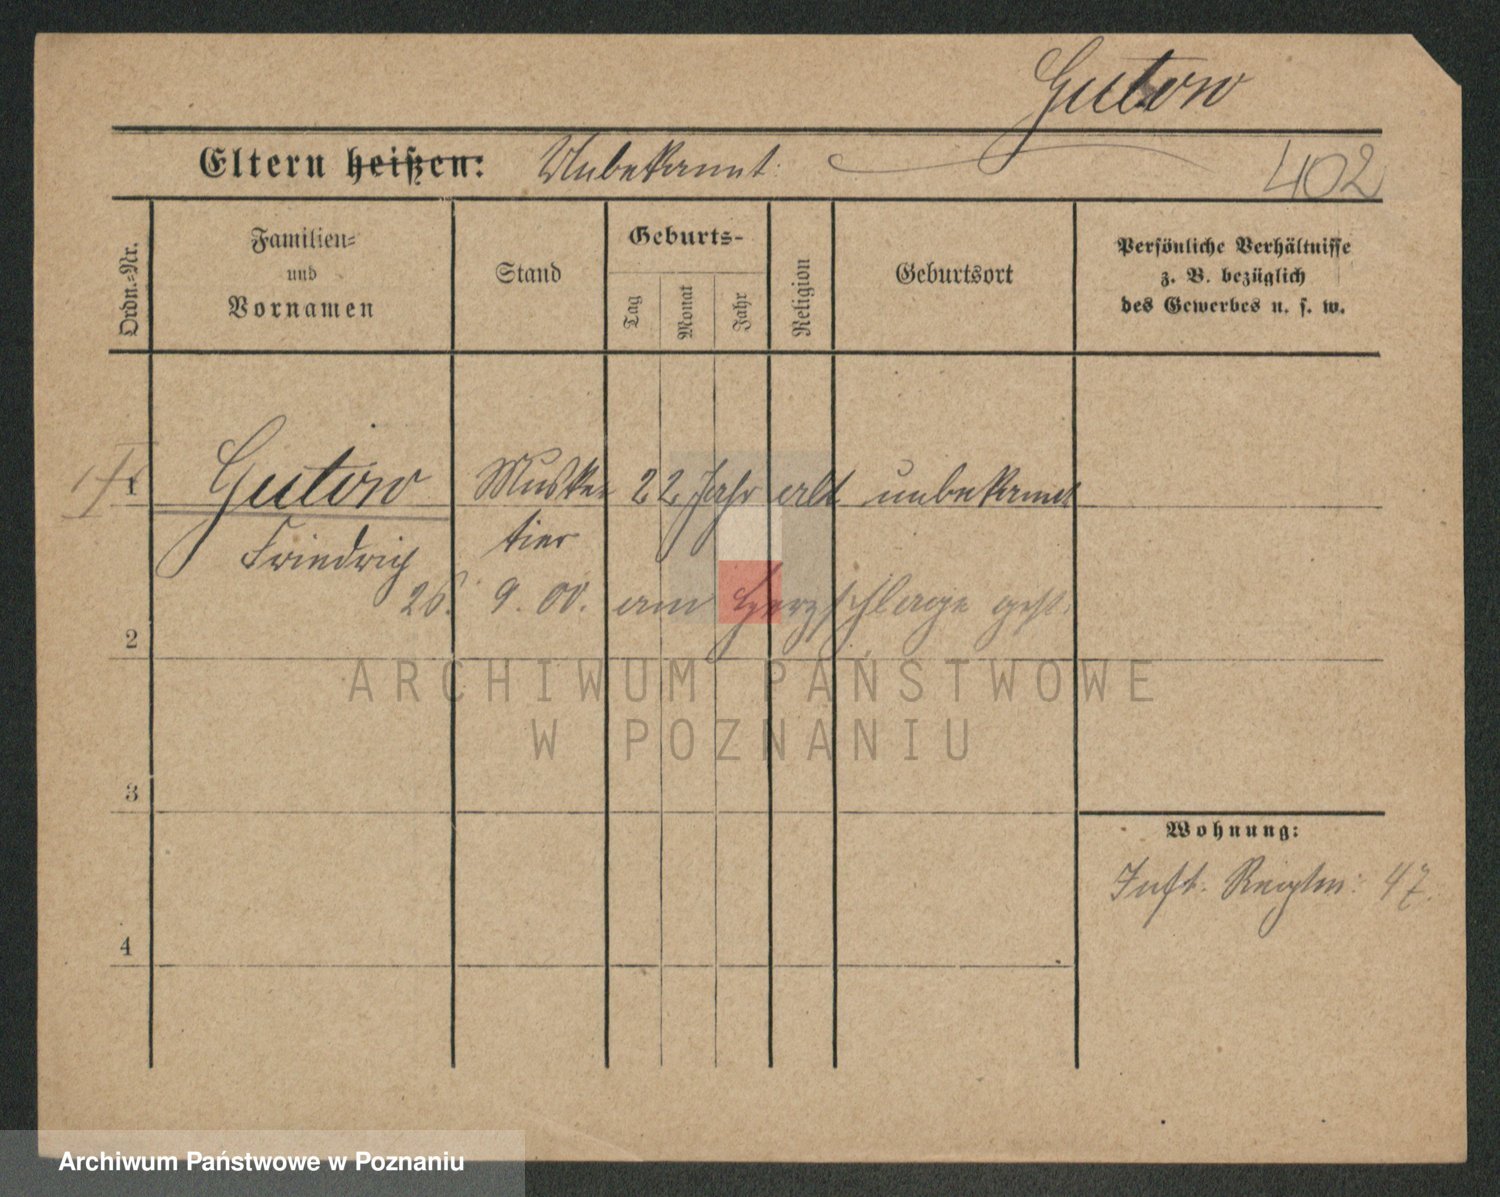 Gutow
Eltern heißen: Unbekannt.
402
Ordn.-Nr.
Familien- und Vornamen
Stand
Geburts-
Tag
Monat
Jahr
Religion
Geburtsort
Persönliche Verhältnisse
z. B. bezüglich
des Gewerbes u. s. w.
1 Gutow Muske 22 Jahr alt unbekannt
Friedrich tier
26. 9. 00. am Herzschlage gest.
2
3
Wohnung:
Inft. Regtm. 47.
4
ARCHIWUM PAŃSTWOWE
W POZNANIU
Archiwum Państwowe w Poznaniu